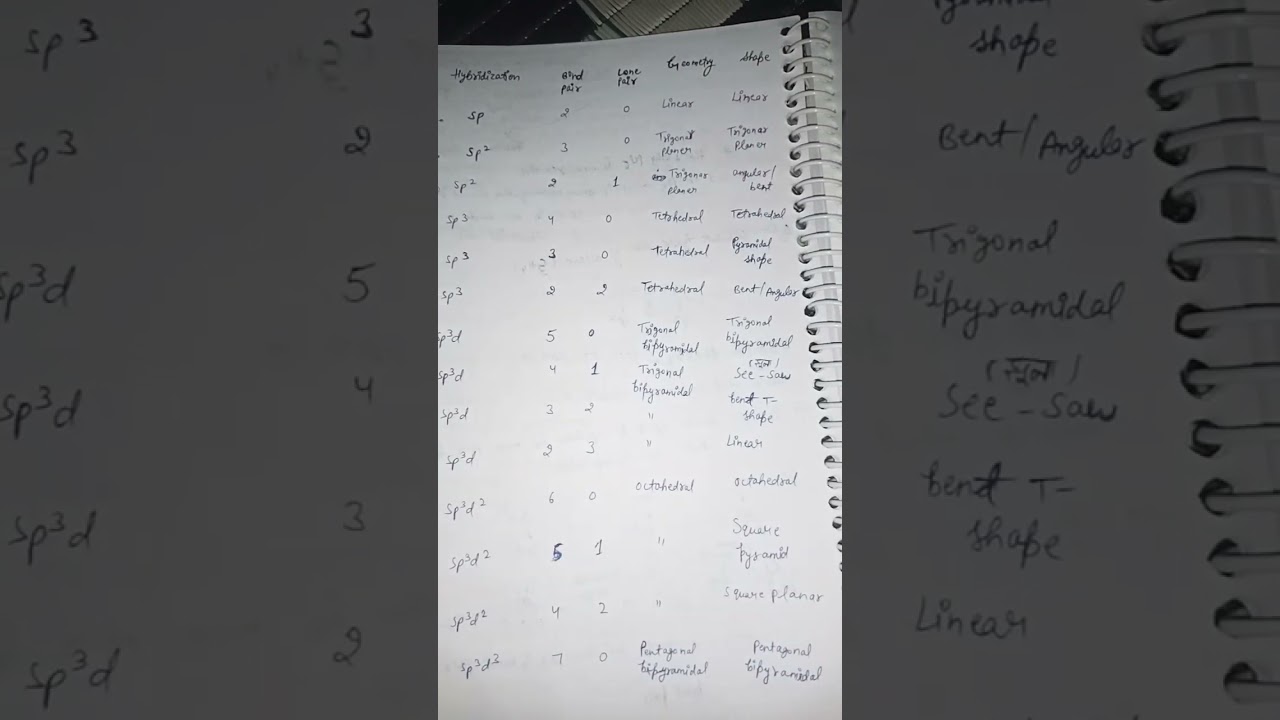 Hybridization Bind pair Lone pair Gyeometry shape
sp 2 0 Linear Linear
sp² 3 0 Trigonal planer Trigonar planer
sp² 2 1 Trigonar planer angular/ bent
sp³ 4 0 Tetrhedral Tetrahedral
sp³ 3 0 tetrahedral Pyramidal shape
sp³ 2 2 Tetrahedral Bent/Angular
sp³d 5 0 Trigonal bipyramidal Trigonal bipyramidal
sp³d 4 1 Trigonal bipyramidal See-Saw
sp³d 3 2 " bent T-shape
sp³d 2 3 " Linear
sp³d² 6 0 octahedral octahedral
sp³d² 5 1 " Square pyramid
sp³d² 4 2 " Square planar
sp³d³ 7 0 Pentagonal bipyramidal Pentagonal bipyramidal